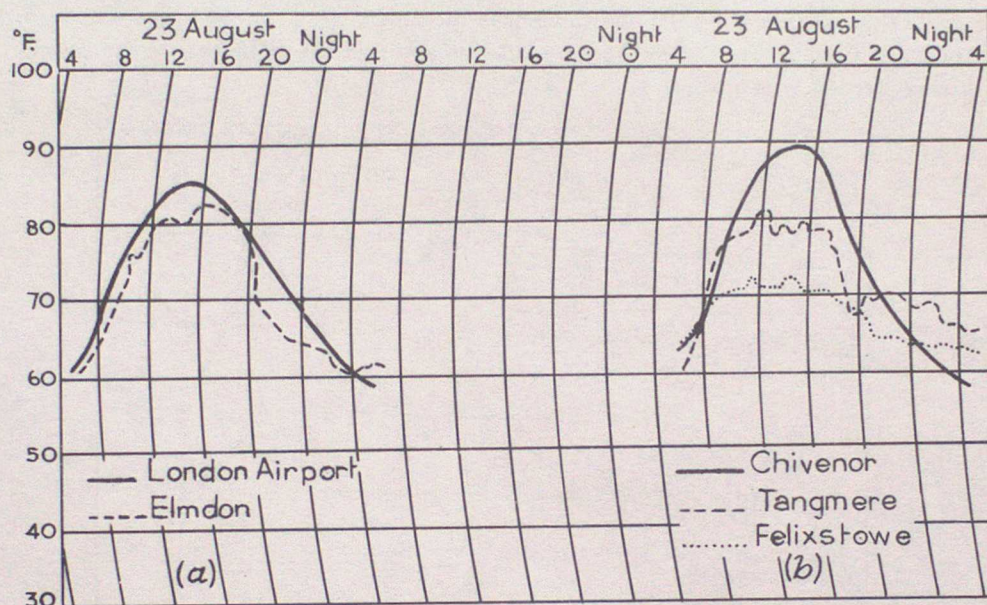 23 August Night Night 23 August Night
°F. 4 8 12 16 20 0 4 8 12 16 20 0 4 8 12 16 20 0 4
100
90
80
70
60
50
London Airport
Elmdon
40
(a)
30
Chivenor
Tangmere
Felixstowe
(b)